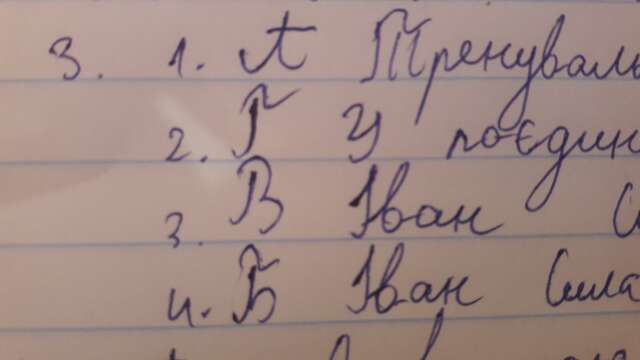 3. 1. А Тренуваль
2. Г У поєдин
3. В Іван
4. Б Іван Сила